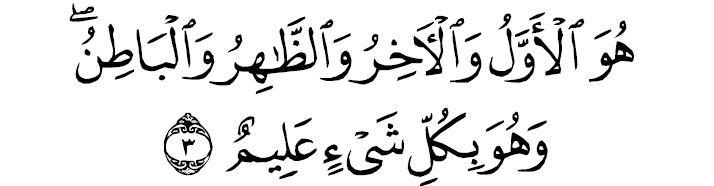 هُوَ ٱلْأَوَّلُ وَٱلْأَخِرُ وَٱلظَّٰهِرُ وَٱلْبَاطِنُ ۖ
وَهُوَ بِكُلِّ شَىْءٍ عَلِيمٌ ٣